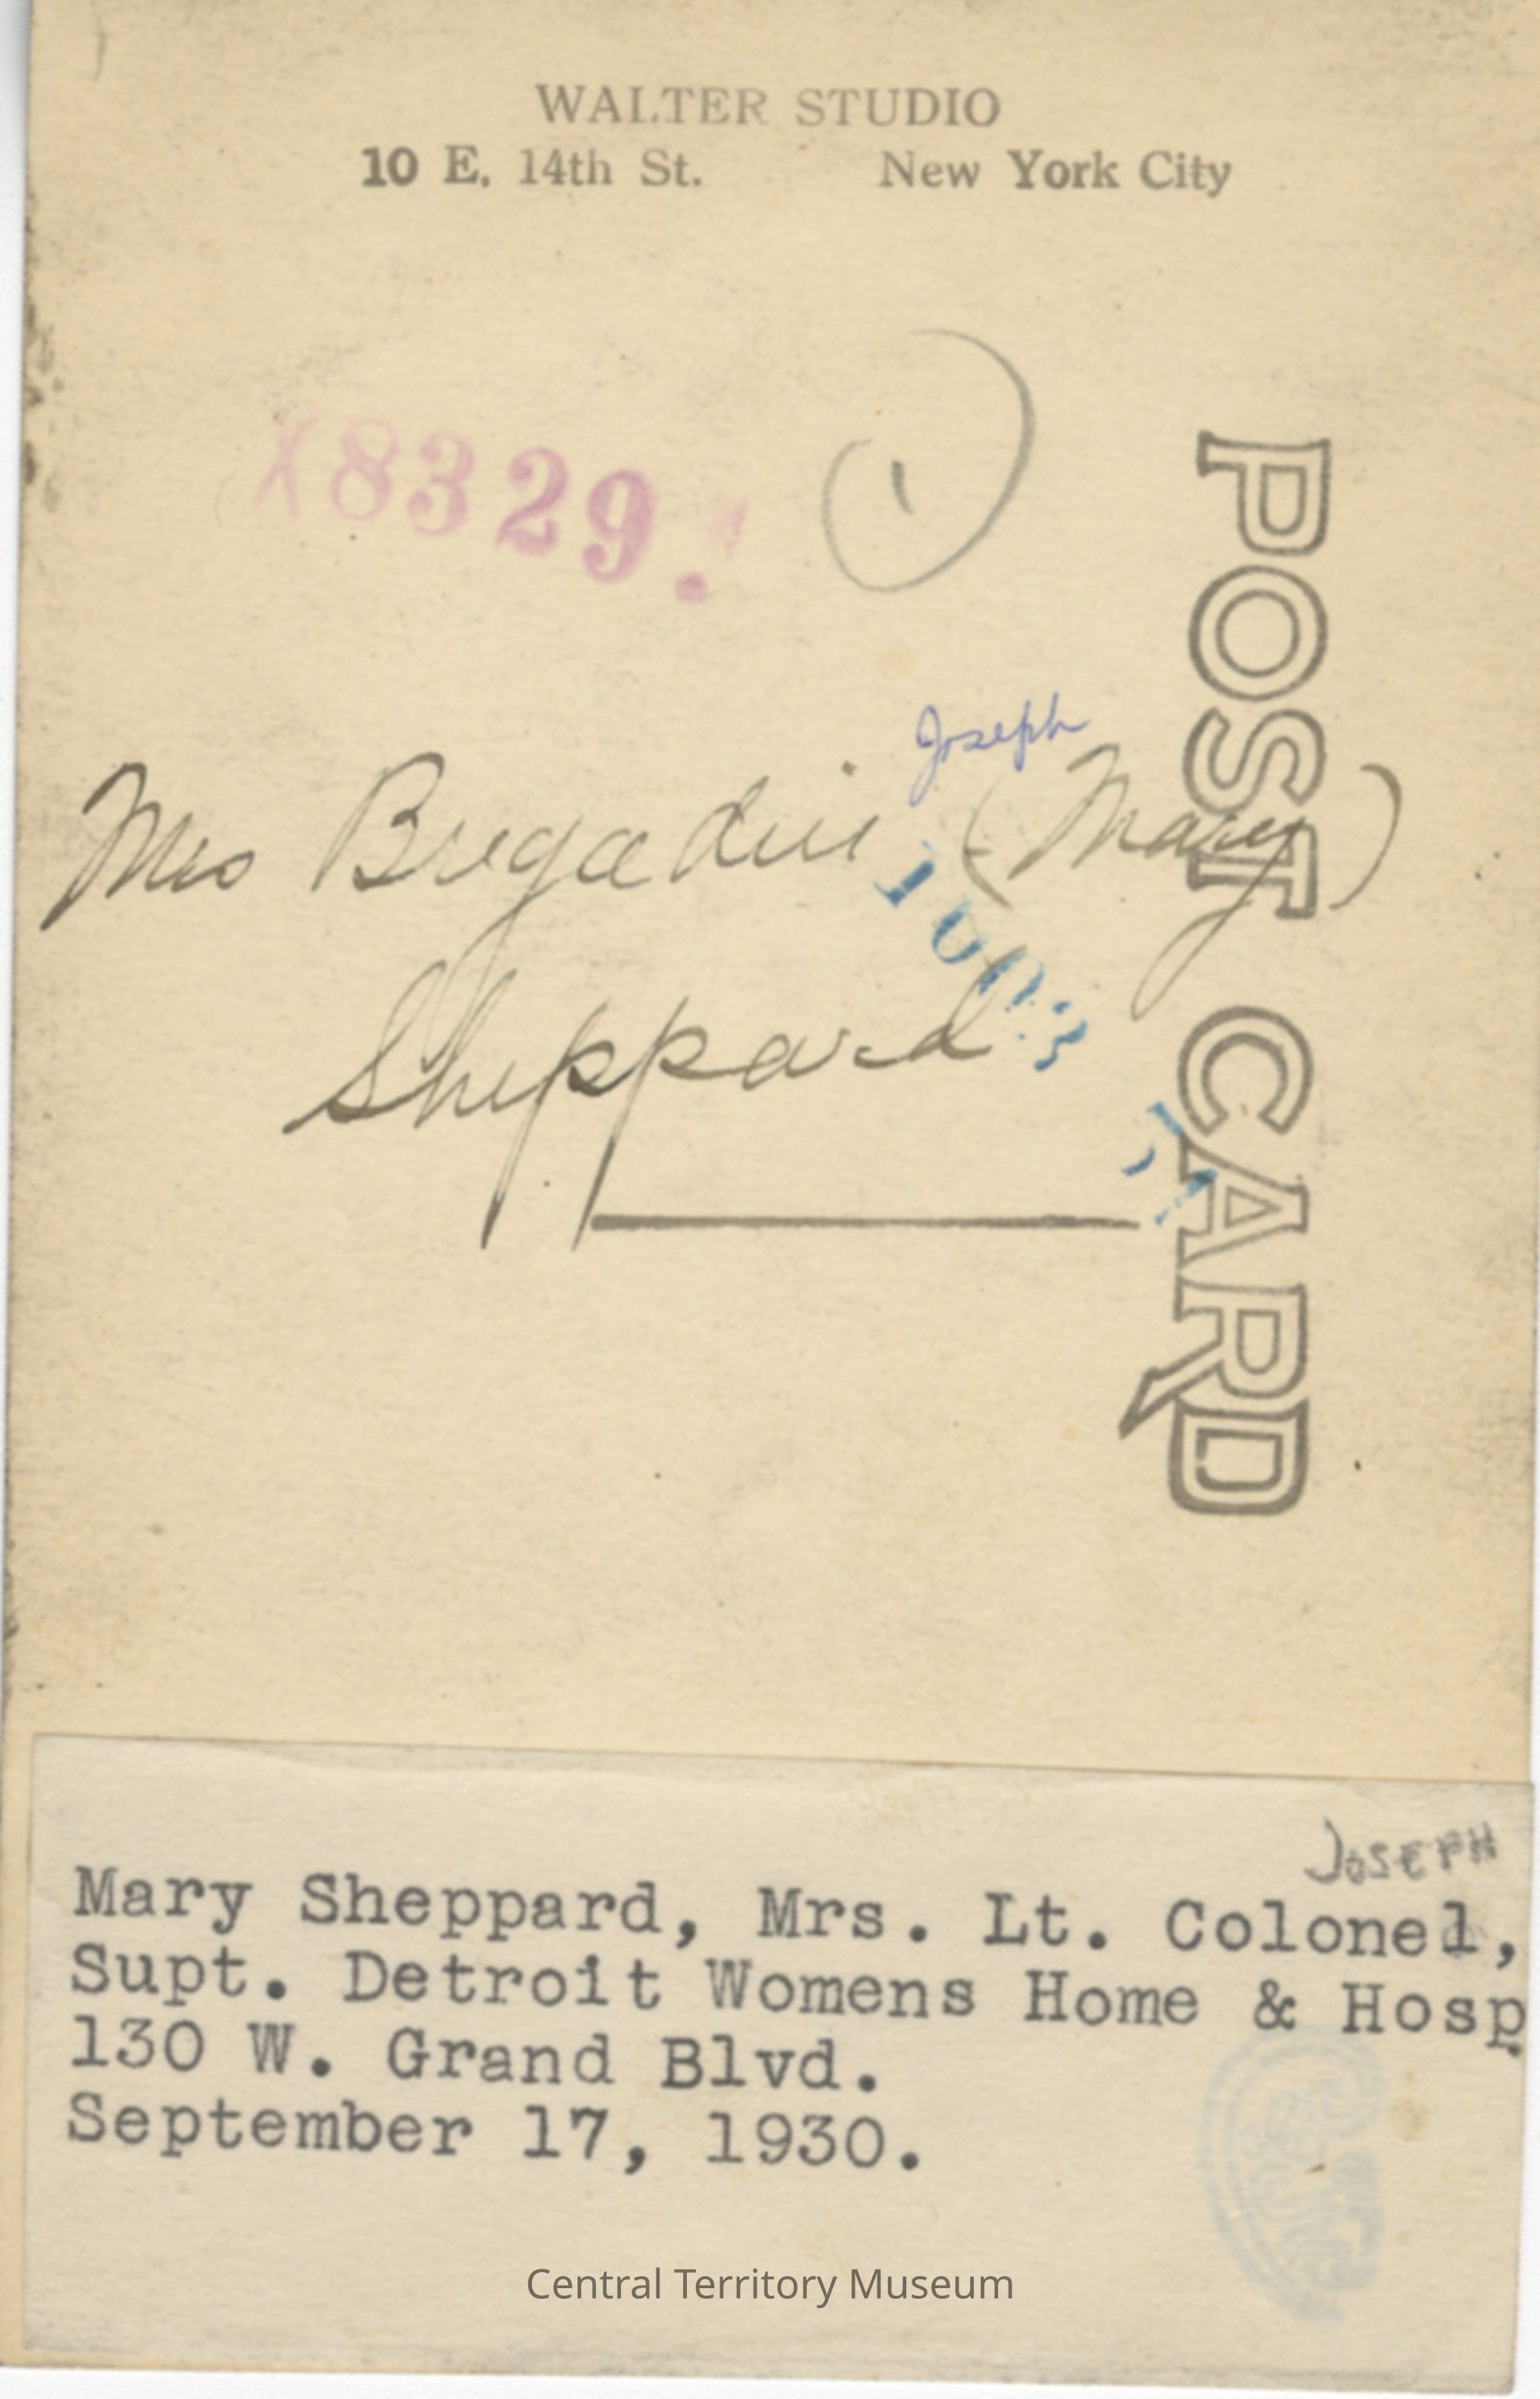 WALTER STUDIO
10 E. 14th St. New York City
X8329.
1
Joseph
Mrs Brigadier (Mary)
Sheppard
POST CARD
JOSEPH
Mary Sheppard, Mrs. Lt. Colonel,
Supt. Detroit Womens Home & Hosp.
130 W. Grand Blvd.
September 17, 1930.
Central Territory Museum